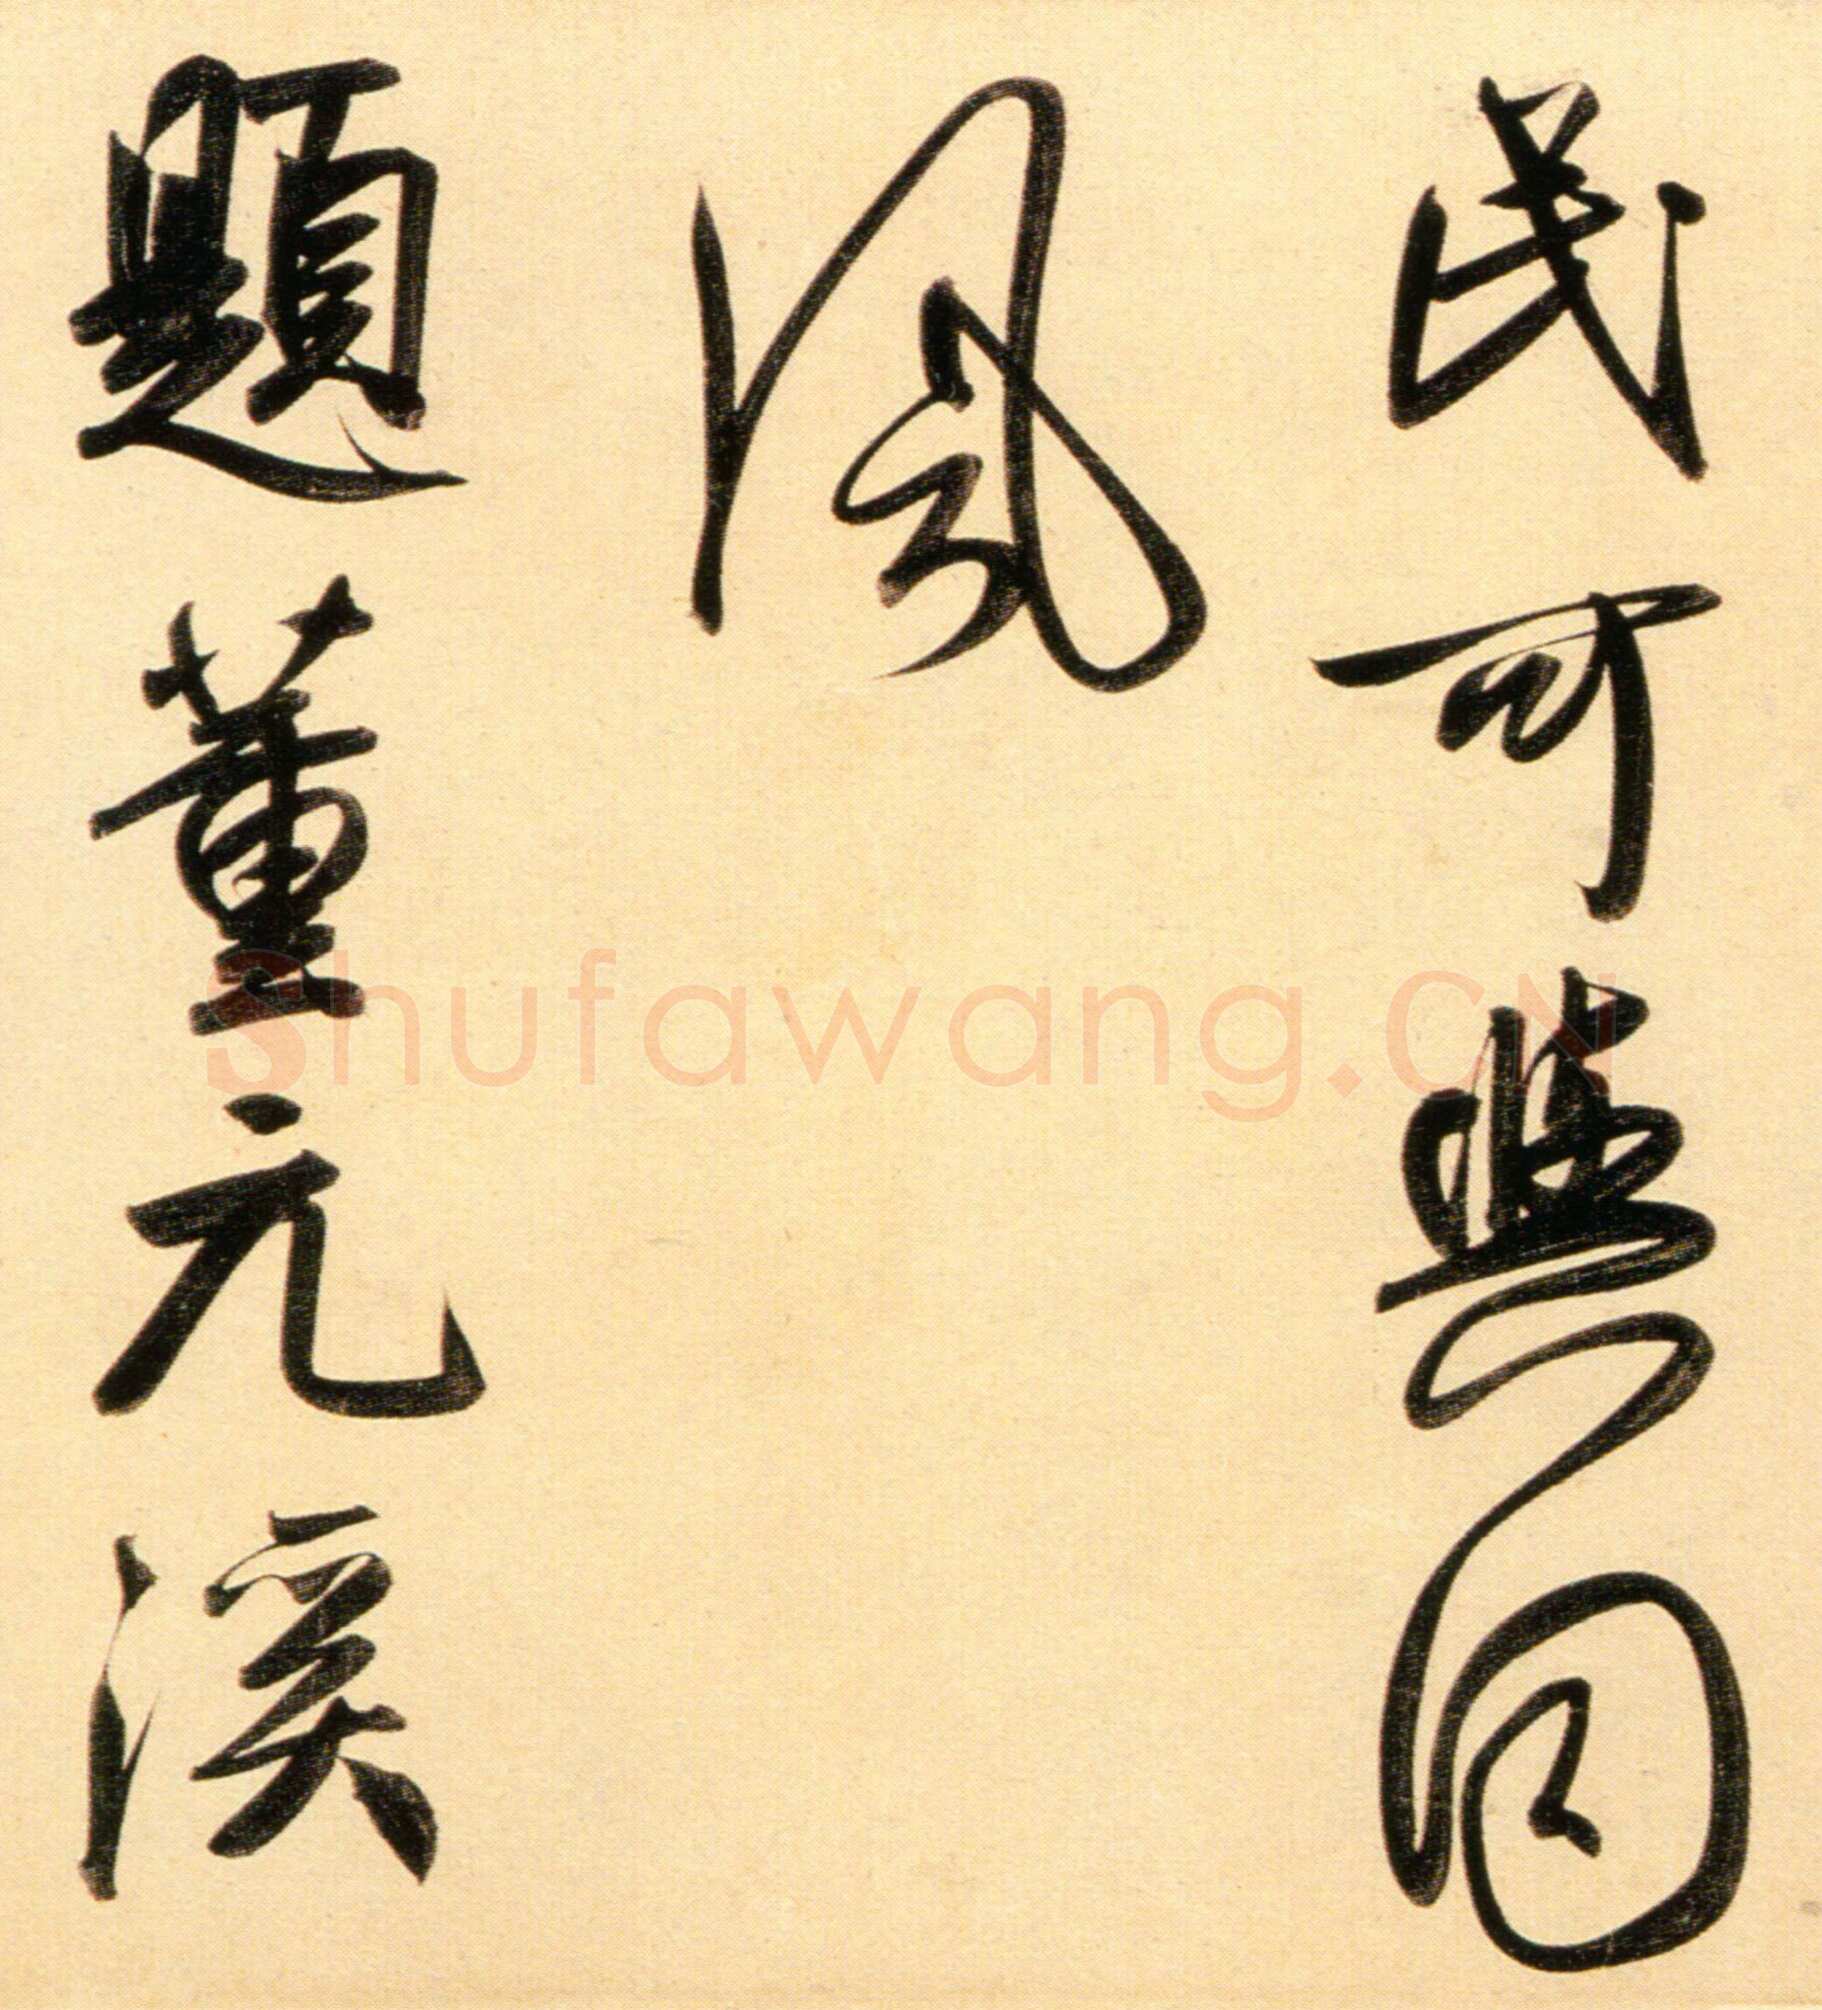 民可與同
風
題董元溪
Shufawang.CN